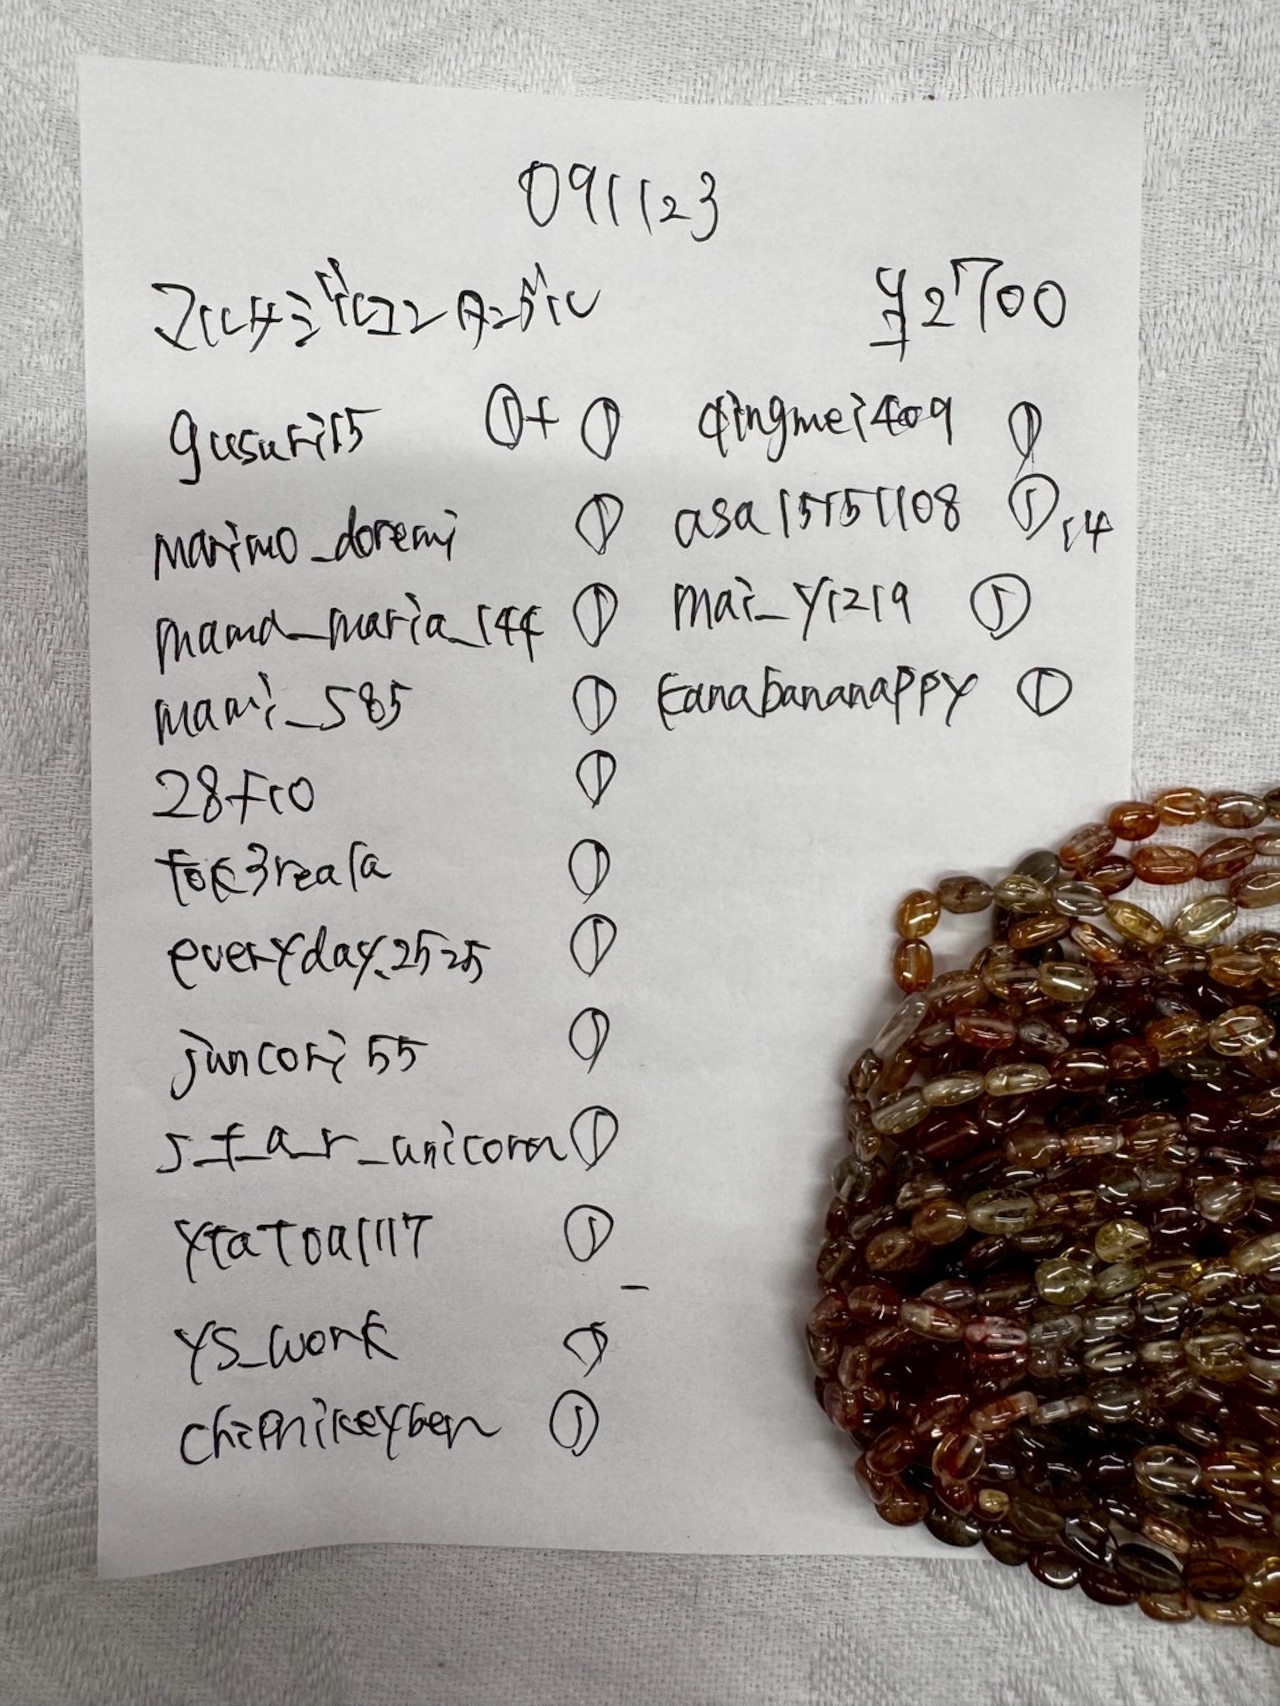 091123
マルチジルコンタンブル ¥2700
gusuri15 ①+ ①
marimo_doremi ①
mama_maria_144 ①
mami_585 ①
28fio ①
tok3reala ①
everyday.2525 ①
juncori55 ①
s_t_a_r_unicorn ①
ytatoa1117 ①
ys_work ①
①
qingmei409 ①
asa15151108 ①,14
mai_y1219 ①
kanabananappy ①